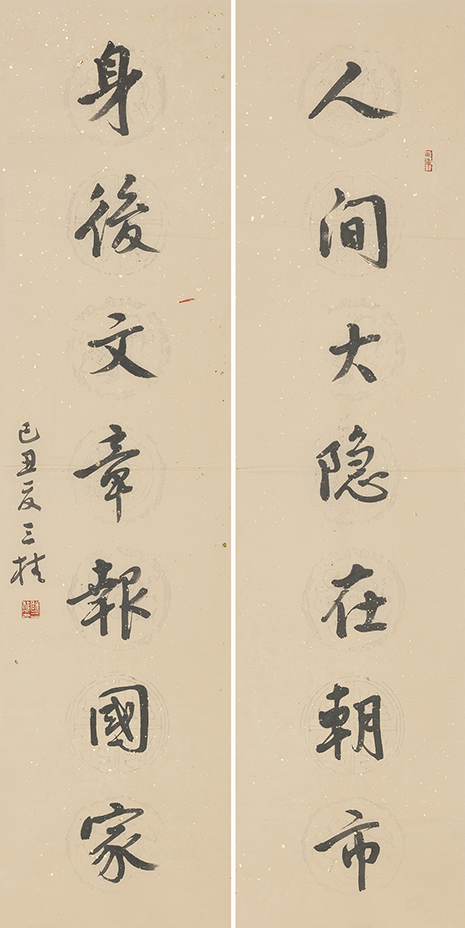 人间大隐在朝市
身後文章報國家
己丑夏三桂